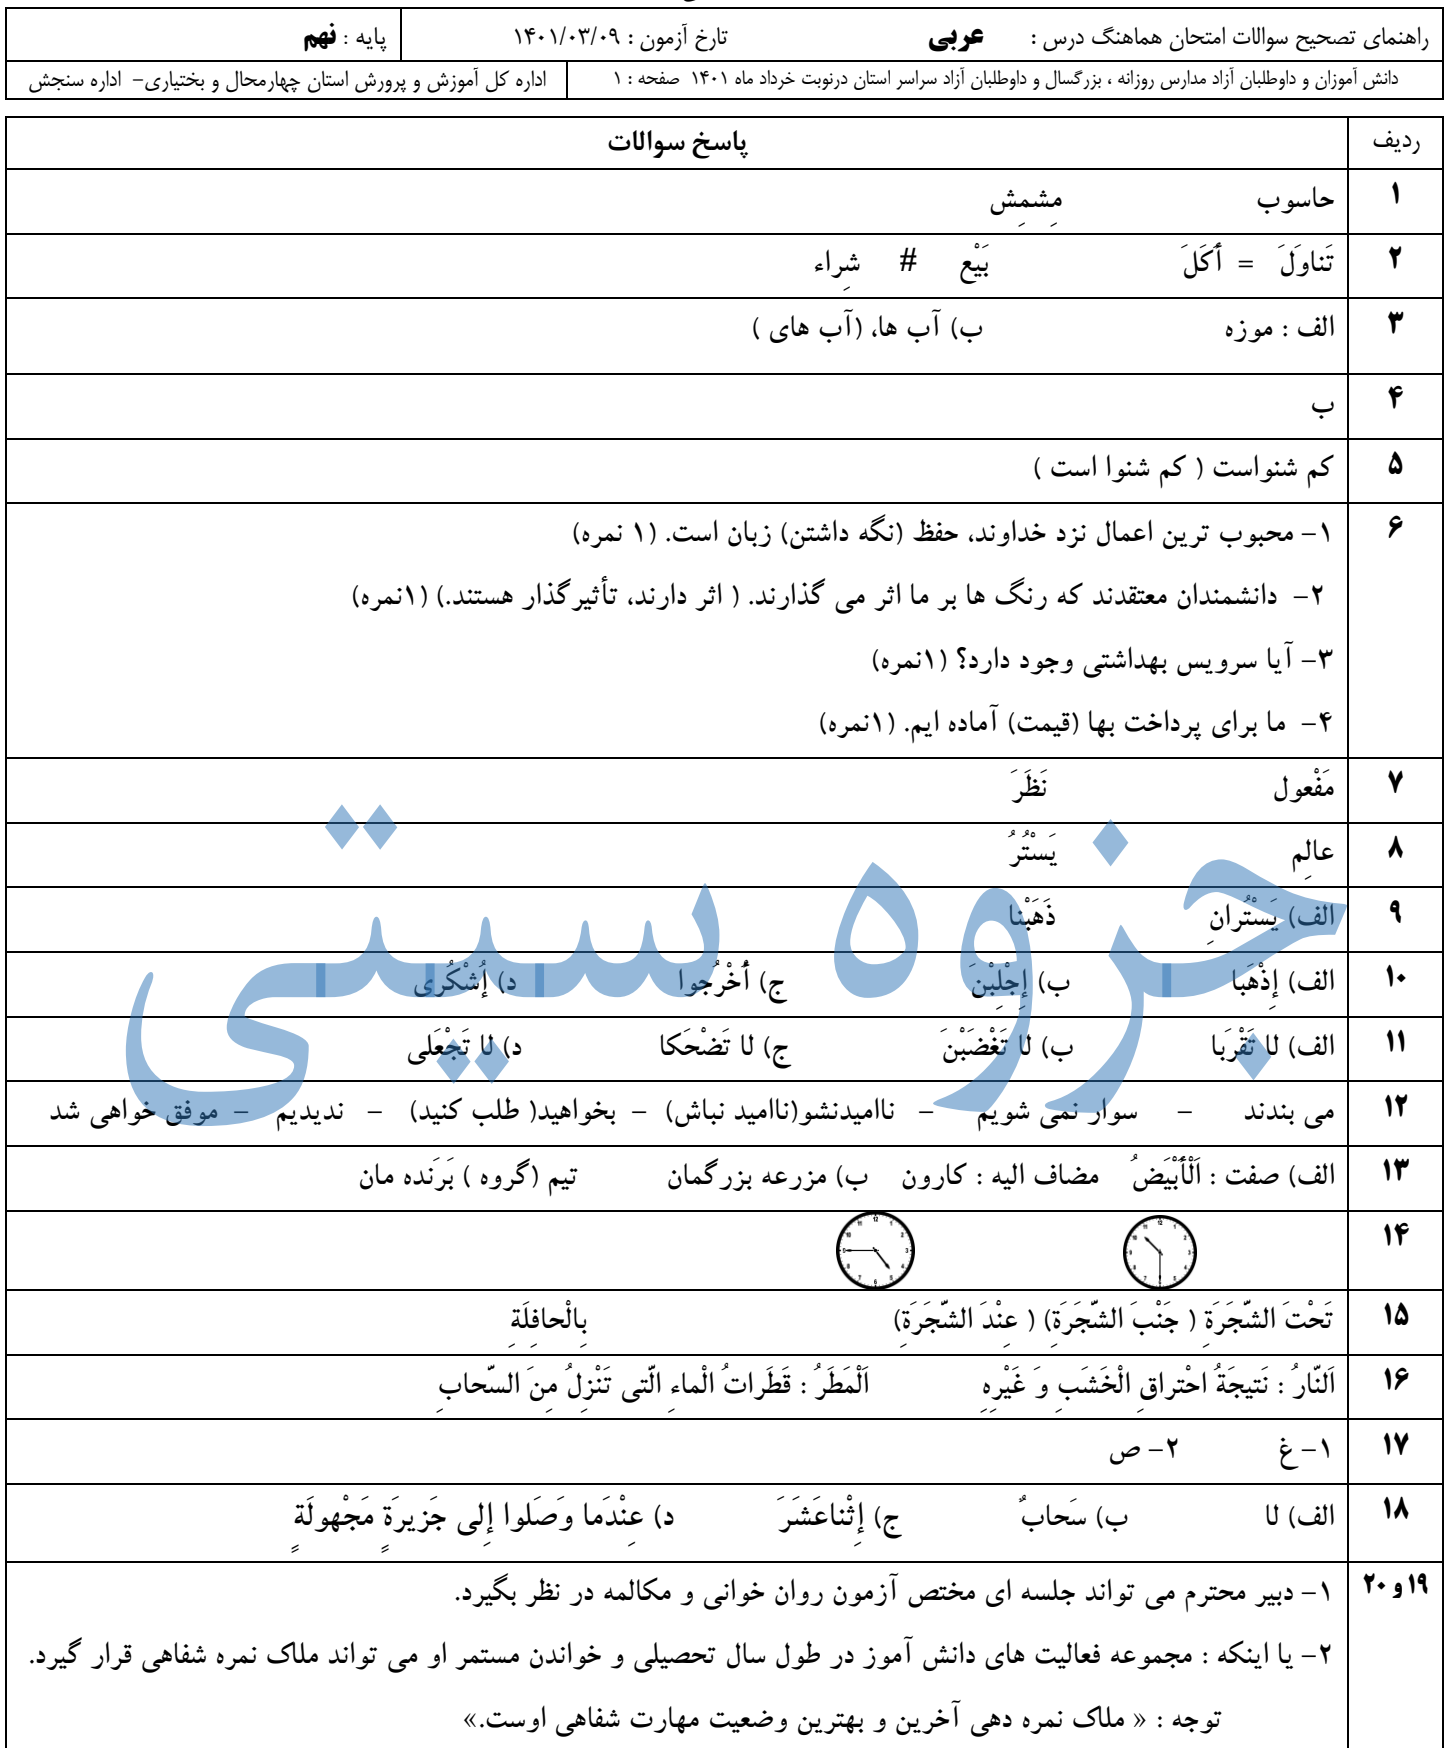 راهنمای تصحیح سوالات امتحان هماهنگ درس : عربی تارخ آزمون : ۱۴۰۱/۰۳/۰۹ پایه : نهم
دانش آموزان و داوطلبان آزاد مدارس روزانه ، بزرگسال و داوطلبان آزاد سراسر استان درنوبت خرداد ماه ۱۴۰۱ صفحه : ۱ اداره کل آموزش و پرورش استان چهارمحال و بختیاری- اداره سنجش
ردیف پاسخ سوالات
۱ حاسوب مِشمِش
۲ تَناوَلَ = أکَلَ بَیْع # شِراء
۳ الف : موزه ب) آب ها، (آب های )
۴ ب
۵ کم شنواست ( کم شنوا است )
۶ ۱- محبوب ترین اعمال نزد خداوند، حفظ (نگه داشتن) زبان است. (۱ نمره)
۲- دانشمندان معتقدند که رنگ ها بر ما اثر می گذارند. ( اثر دارند، تأثیرگذار هستند.) (۱نمره)
۳- آیا سرویس بهداشتی وجود دارد؟ (۱نمره)
۴- ما برای پرداخت بها (قیمت) آماده ایم. (۱نمره)
۷ مَفْعول نَظَرَ
۸ عالِم یَسْتُرُ
۹ الف) یَسْتُرانِ ذَهَبْنا
۱۰ الف) إِذْهَبا ب) إِجْلِبْنَ ج) أُخْرُجوا د) إُشْکُری
۱۱ الف) لا تَقْرَبَا ب) لا تَغْضَبْنَ ج) لا تَضْحَکا د) لا تَجْعَلی
۱۲ می بندند - سوار نمی شویم - ناامیدنشو(ناامید نباش) - بخواهید( طلب کنید) - ندیدیم - موفق خواهی شد
۱۳ الف) صفت : اَلْأَبْیَضُ مضاف الیه : کارون ب) مزرعه بزرگمان تیم (گروه ) بَرَنده مان
۱۴
۱۵ تَحْتَ الشَّجَرَةِ ( جَنْبَ الشَّجَرَةِ) ( عِنْدَ الشَّجَرَةِ) بِالْحافِلَةِ
۱۶ اَلنّارُ : نَتیجَةُ احْتراقِ الْخَشَبِ وَ غَیْرِهِ اَلْمَطَرُ : قَطَراتُ الْماءِ الَّتی تَنْزِلُ مِنَ السَّحابِ
۱۷ ۱- غ ۲- ص
۱۸ الف) لا ب) سَحابٌ ج) إِثْناعَشَرَ د) عِنْدَما وَصَلوا إِلی جَزیرَةٍ مَجْهولَةٍ
۱۹و۲۰ ۱- دبیر محترم می تواند جلسه ای مختص آزمون روان خوانی و مکالمه در نظر بگیرد.
۲- یا اینکه : مجموعه فعالیت های دانش آموز در طول سال تحصیلی و خواندن مستمر او می تواند ملاک نمره شفاهی قرار گیرد.
توجه : « ملاک نمره دهی آخرین و بهترین وضعیت مهارت شفاهی اوست.»
جزوه سیتی